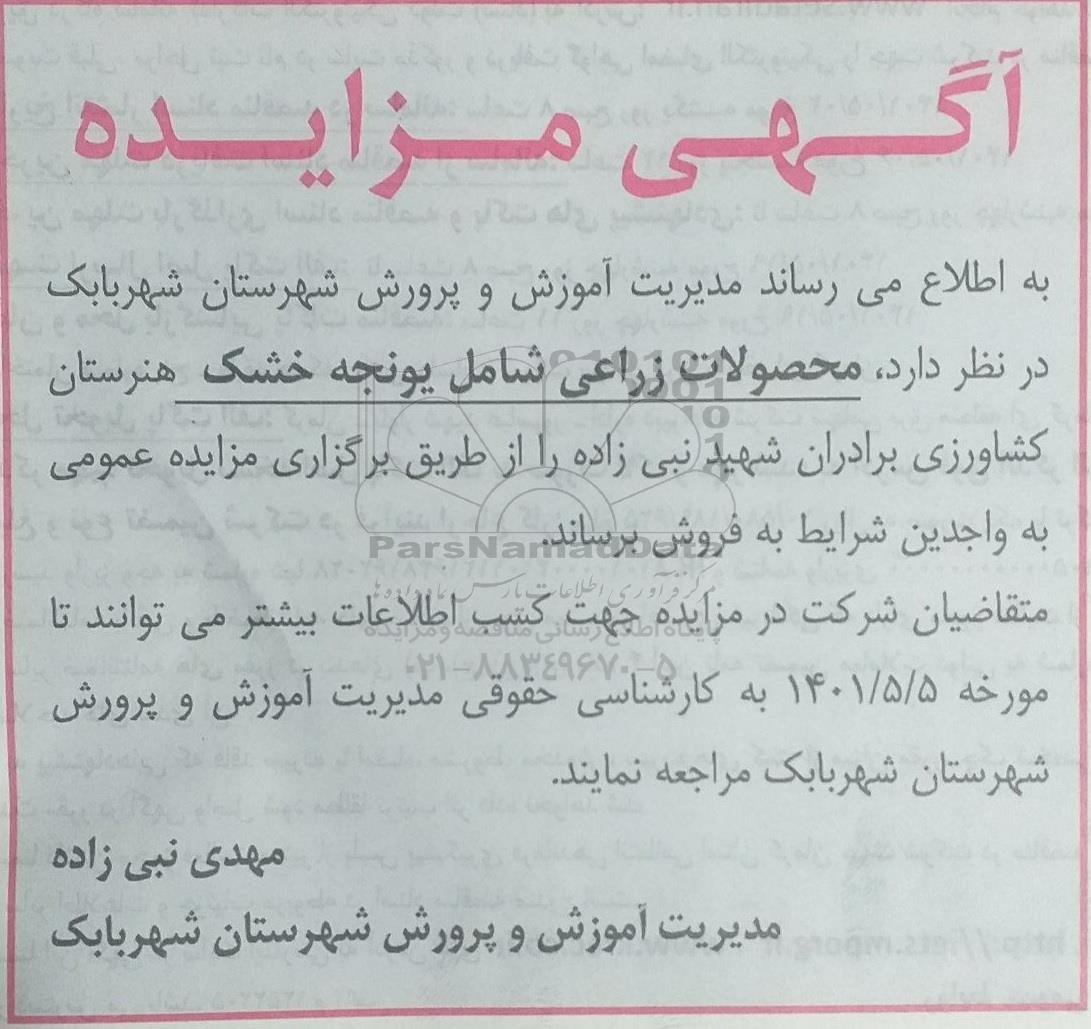 آگهی مزایده
به اطلاع می رساند مدیریت آموزش و پرورش شهرستان شهربابک
در نظر دارد، محصولات زراعی شامل یونجه خشک هنرستان
کشاورزی برادران شهید نبی زاده را از طریق برگزاری مزایده عمومی
به واجدین شرایط به فروش برساند.
ParsNamadData
متقاضیان شرکت در مزایده جهت کسب اطلاعات بیشتر می توانند تا
پایگاه اطلاع رسانی مناقصه و مزایده
۰۲۱-۸۸۳۴۹۶۷۰-۵
مورخه ۱۴۰۱/۵/۵ به کارشناسی حقوقی مدیریت آموزش و پرورش
شهرستان شهربابک مراجعه نمایند.
مهدی نبی زاده
مدیریت آموزش و پرورش شهرستان شهربابک